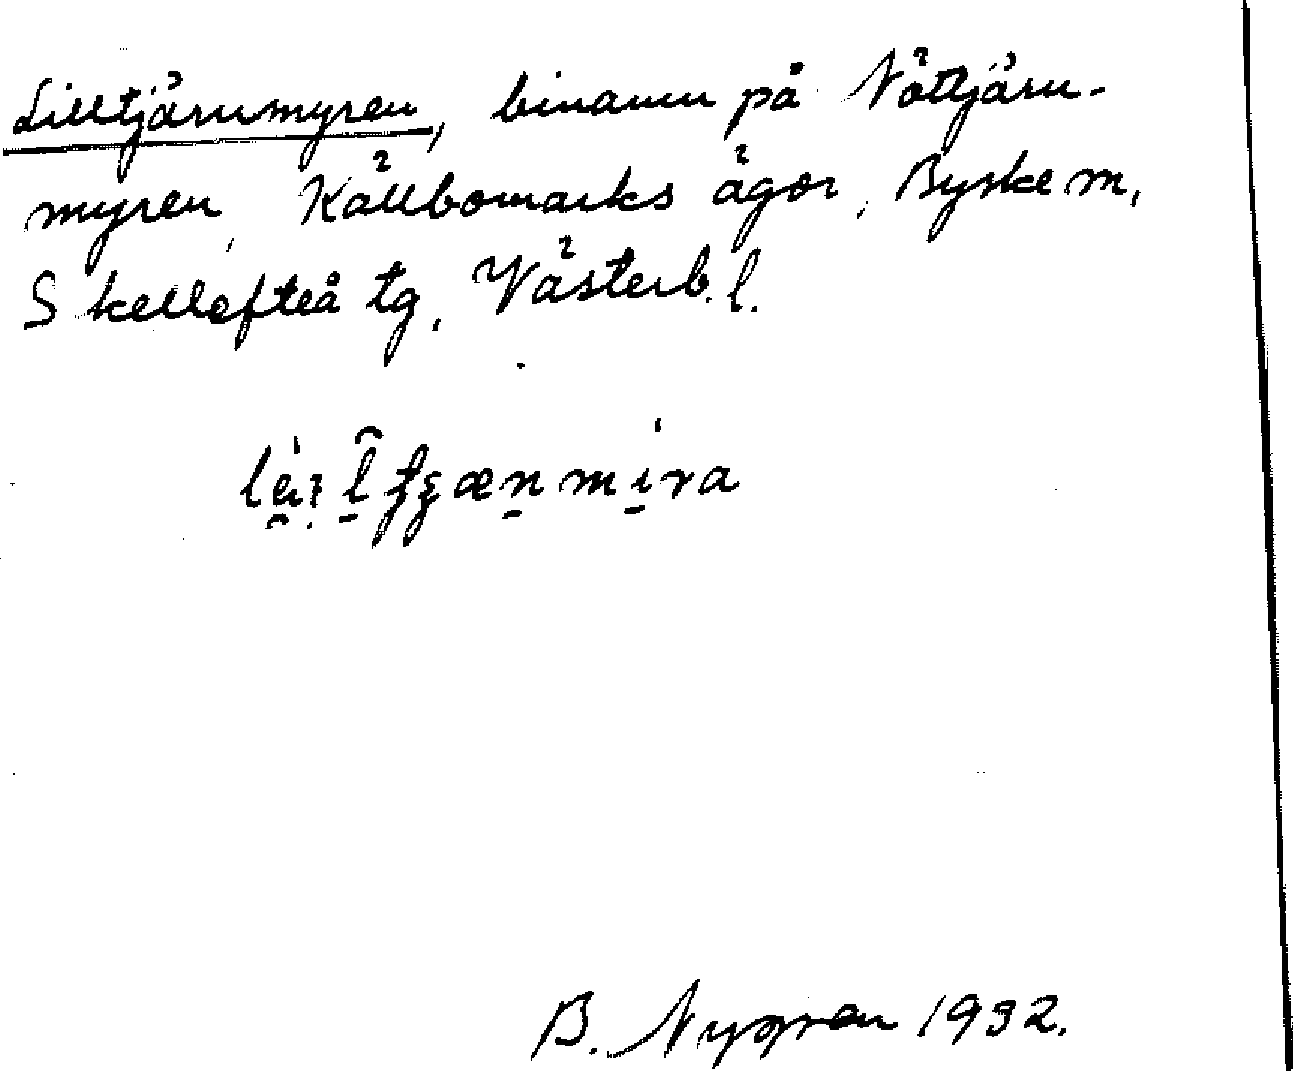 Lilltjärnmyren, binamn på Nöttjärn-
myren, Källbomarks ägor, Byske m,
Skellefteå tg, Västerb. l.
B. Nygren 1932.